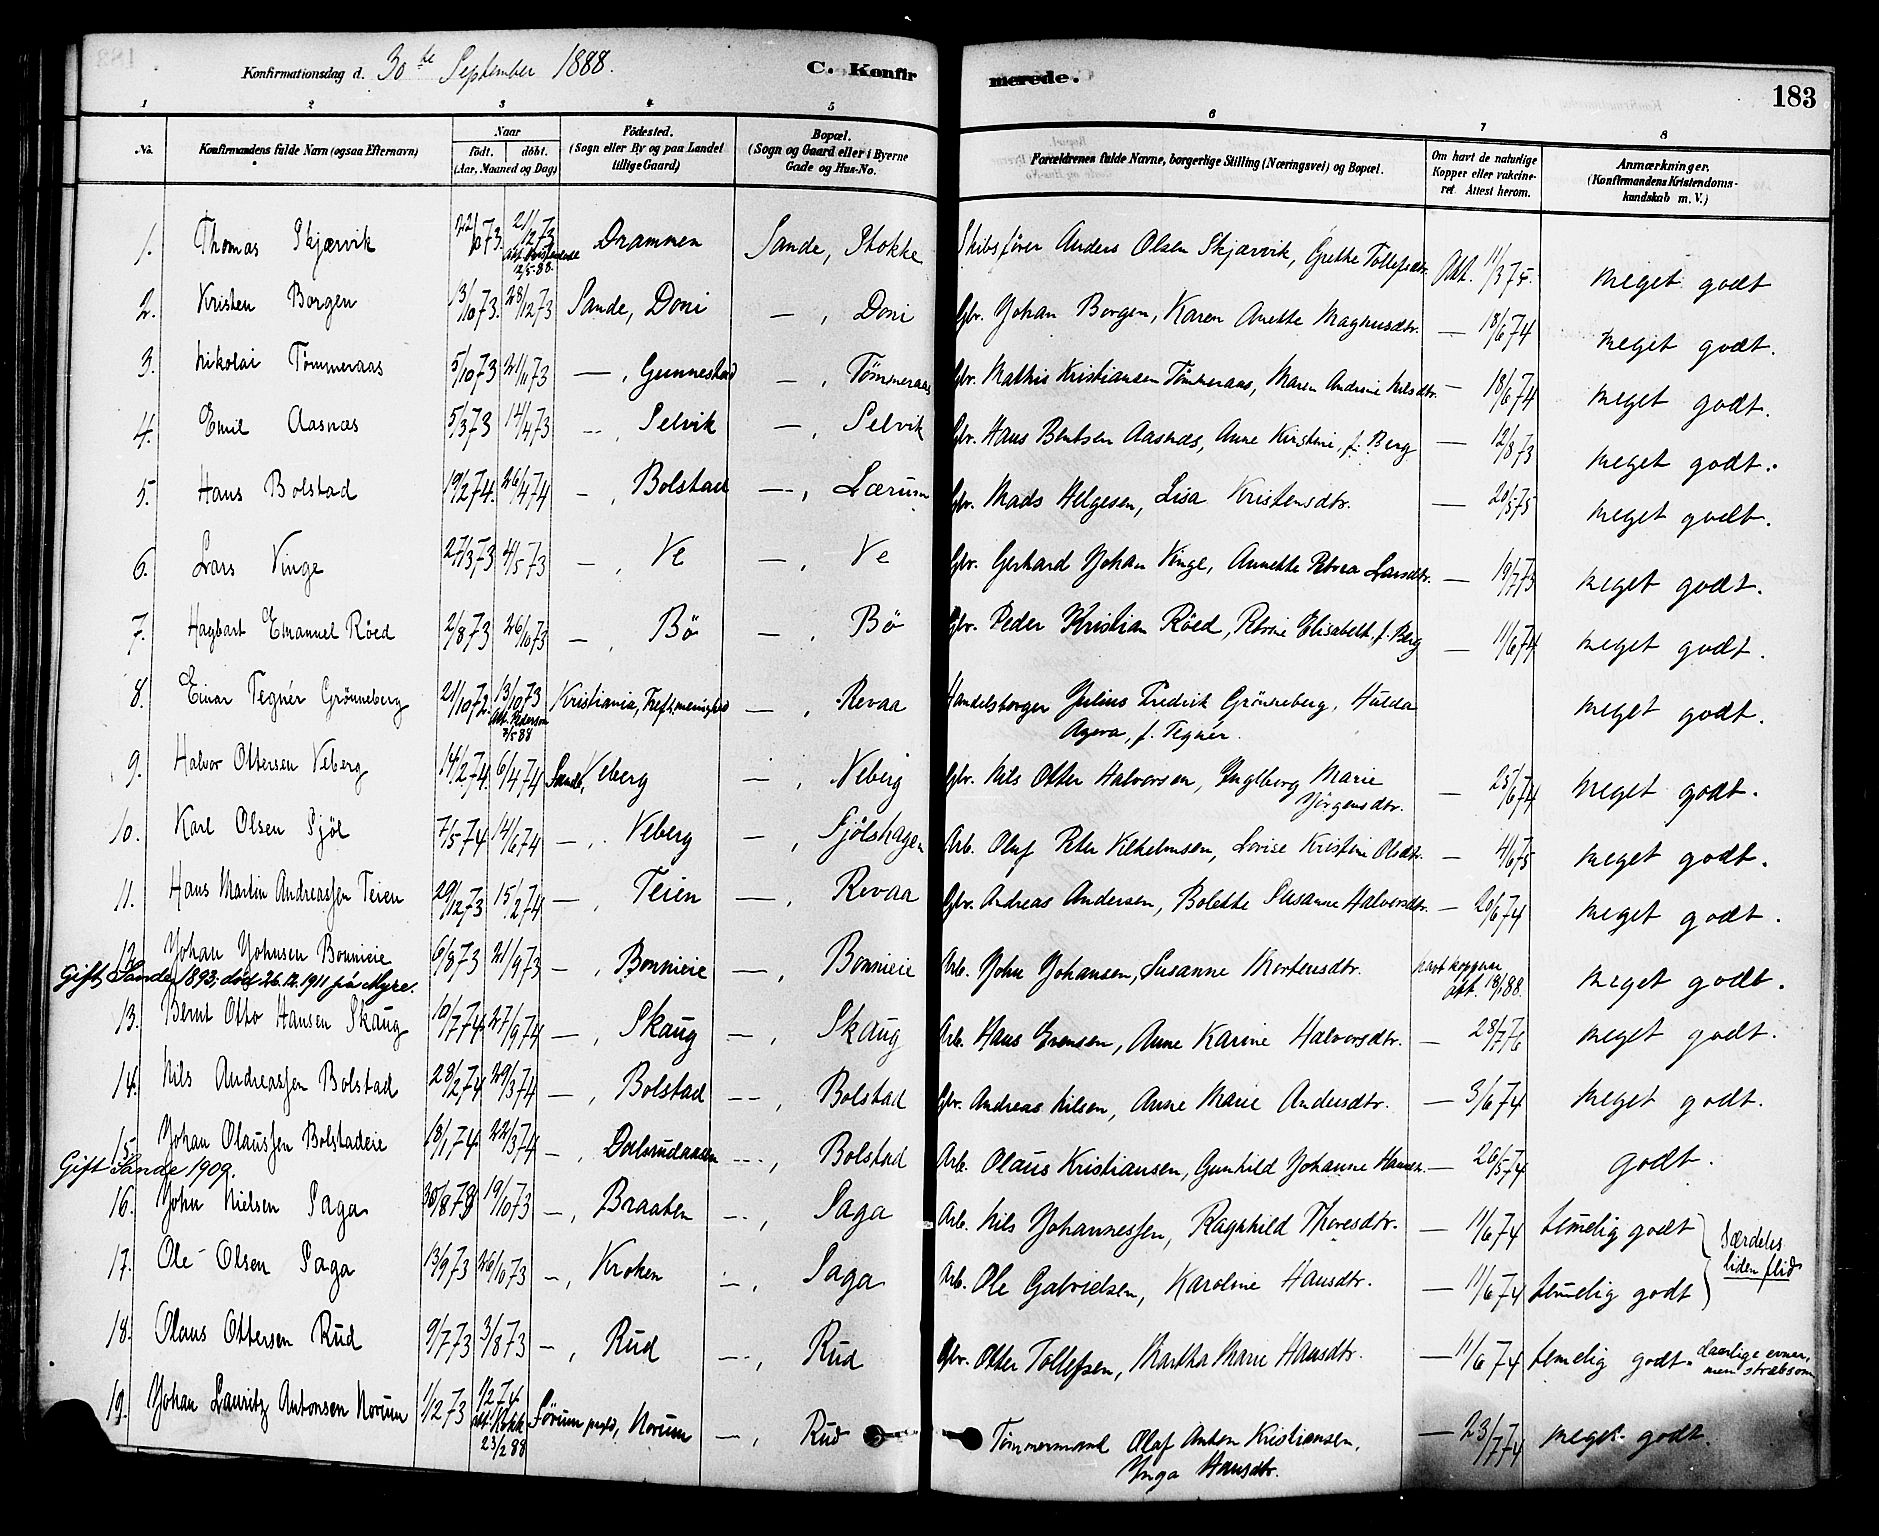 Konfirmationsdag d. 30te September 1888.
C. Konfirmerede.
183
1 2 3 4 5 6 7 8
No.
Konfirmandens fulde Navn (ogsaa Efternavn)
Naar
født. døbt.
(Aar, Maaned og Dag)
Fødested.
(Sogn eller By og paa Landet
tillige Gaard)
Bopæl.
(Sogn og Gaard eller i Byerne
Gade og Hus-No.
Forældrenes fulde Navne, borgerlige Stilling (Næringsvei) og Bopæl.
Om havt de naturlige
Kopper eller vakcine-
ret Attest herom.
Anmærkninger.
(Konfirmandens Kristendoms-
kundskab m. V.)
1. Thomas Skjærvik 22/10 73. 21/12 73 12/5 88. Drammen Sande, Stokke Skibsfører Anders Olsen Skjærvik, Grethe Tollefsdtr. Att. 11/3 75. meget godt
2. Kristen Borgen 13/10 73. 28/12 73 Sande, Doni — , Doni Gbr. Johan Borgen, Karen Anette Magnusdtr. — 18/6 74 meget godt.
3. Nikolai Tømmeraas 5/10 73 2/11 73 — , Gunnestad — , Tømmeraas Gbr. Mathis Kristiansen Tømmeraas, Maren Andrine Nilsdtr. — 18/6 74 meget godt.
4. Emil Aasnæs 5/3 73 14/4 73 — , Selvik — , Selvik Gbr. Hans Bentsen Aasnæs, Anne Kirstine, f. Berg — 12/8 73 meget godt.
5. Hans Bolstad 19/2 74. 26/4 74 — , Bolstad — , Lærum Gbr. Mads Helgesen, Lisa Kristensdtr. — 20/5 75 meget godt.
6. Lars Vinge 27/3 73 4/5 73 — , Ve — , Ve Gbr. Gerhard Johan Vinge, Annette Petrea Larsdtr. — 19/7 73 meget godt.
7. Hagbart Emanuel Røed 2/8 73 26/10 73 — , Bø — , Bø Gbr. Peder Kristian Røed, Petrine Elisabeth, f. Berg — 11/6 74 meget godt.
8. Einar Tegnér Grønneberg 21/10 72. 13/10 73 att. Pederson 3/5 88 Kristiania, — , Revaa Handelsborger Julius Fredrik Grønneberg, Hulda
Agera, f. Tegnér. meget godt.
9. Halvor Ottersen Veberg 14/2 74. 6/4 74 Sande, Veberg — , Veberg Gbr. Nils Otter Halvorsen, Ingeborg Marie
Jørgensdtr. — 25/6 74 meget godt.
10. Karl Olsen Sjøl 7/5 74 14/6 74 — , Veberg — , Sjølshagen Arb. Oluf Peter Vilhelmsen, Lovise Kristine Olsdtr. — 4/6 75 meget godt.
11. Hans Martin Andreassen Teien 29/12 73 15/2 74 — , Teien — , Revaa Gbr. Andreas Andersen, Bolette Susanne Halvorsdtr. — 20/6 74 meget godt.
12. Johan Johnsen Bonnieie 6/8 73 21/9 73 — , Bonnieie — , Bonnieie Arb. John Johansen, Susanne Mortensdtr. havt kopperne att. 18/1 88. meget godt.
Gift Sande 1893, død 26.12.1911 på Myre.
13. Bernt Otto Hansen Skaug 10/7 74 27/9 74 — , Skaug — , Skaug Arb. Hans Evensen, Anne Karine Halvorsdtr. — 28/7 76 meget godt.
14. Nils Andreassen Bolstad 28/2 74 29/3 74 — , Bolstad — , Bolstad Gbr. Andreas Nilsen, Anne Marie Andersdtr. — 3/6 74 meget godt.
15. Johan Olaussen Bolstadeie 18/1 74. 22/3 74 — , — , Bolstad Arb. Olaus Kristiansen, Gunhild Johanne Hansen — 26/5 74 godt.
Gift Sande 1909.
16. John Nielsen Saga 30/8 73 19/10 73 — , Braaten — , Saga Arb. Nils Johannessen, Ragnhild Thoresdtr. — 11/6 74 temelig godt
17. Ole Olsen Saga 13/9 73 26/10 73 — , Kroken — , Saga Arb. Ole Gabrielsen, Karoline Hansdtr. — 11/6 74 temelig godt
Særdeles
liden flid
18. Olaus Ottersen Rud 9/7 73 3/8 73 — , Rud — , Rud Gbr. Otter Tollefsen, Martha Marie Hansdtr. — 11/6 74 temelig godt. daarlige evner,
men stræbsom
19. Johan Lauritz Antonsen Norum 1/12 73 1/2 74 23/2 88 Sørum prgld, Norum — , Rud Tømmermand Olaf Anton Kristiansen,
Inga Hansdtr. — 23/7 74 meget godt.